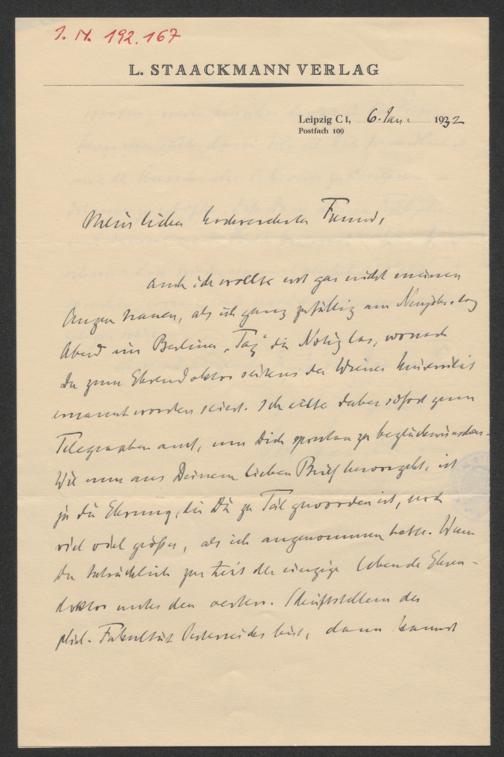 I. N. 192.167
L. STAACKMANN VERLAG
Leipzig C 1, 6. Jan. 1932
Postfach 109
Mein lieber Freund,
auch ich wollte erst gar nicht meinen
Augen trauen, als ich ganz zufällig am Neujahrstag
Abend im Berliner „Tag" die Notiz las, wonach
Du zum Ehrendoktor seitens der Wiener Universität
ernannt worden seiest. Ich eilte daher sofort zum
Telegraphenamt, um Dich spontan zu beglückwünschen.
Wie nun aus Deinem lieben Brief hervorgeht, ist
ja die Ehrung, die Dir zu Teil geworden ist, noch
viel viel größer, als ich angenommen hatte. Wenn
Du tatsächlich zur Zeit der einzige lebende Ehren-
doktor unter den oesterr. Schriftstellern der
phil. Fakultät Oesterreichs bist, dann kannst